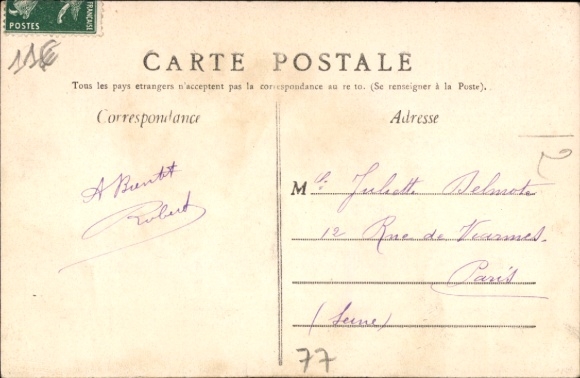 POSTES
FRANÇAISE
11€
CARTE POSTALE
Tous les pays etrangers n'acceptent pas la correspondance au re to. (Se renseigner à la Poste).
Correspondance
Adresse
2
A Bientôt
Robert
Mlle Juliette Delmote
12 Rue de
Paris
(Seine)
77